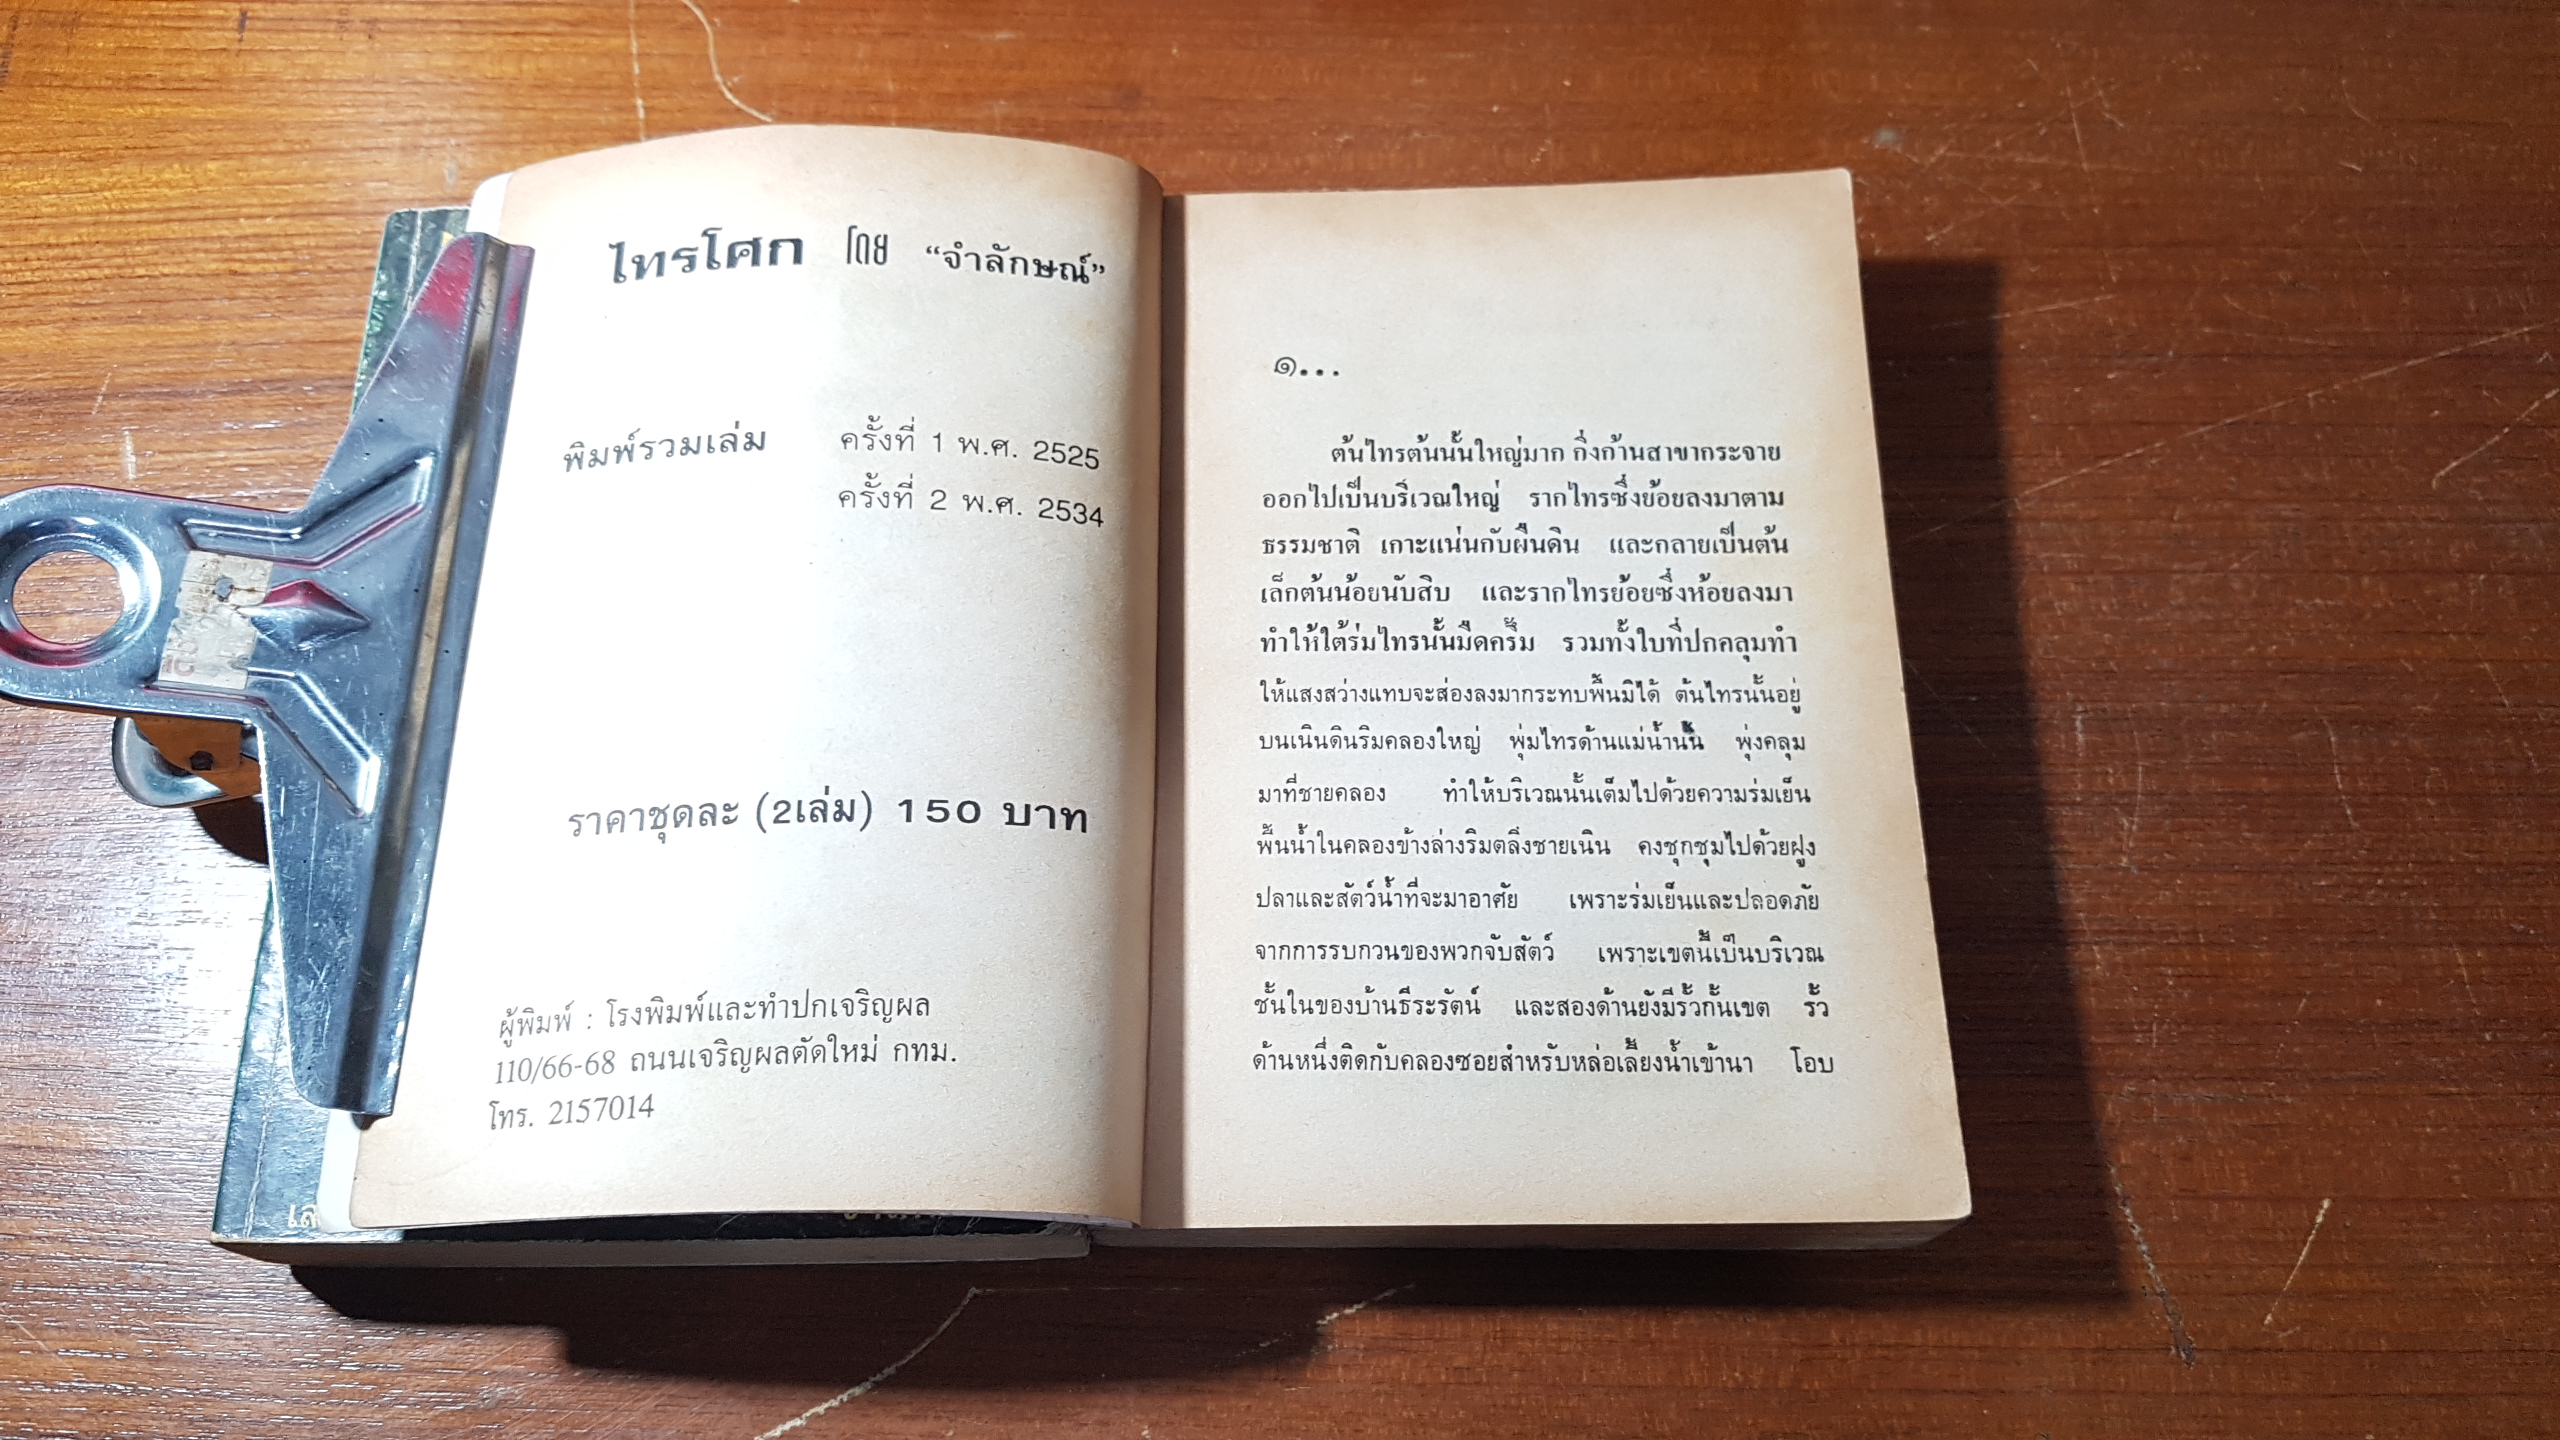 ไทรโศก โดย “จำลักษณ์”
พิมพ์รวมเล่ม ครั้งที่ 1 พ.ศ. 2525
ครั้งที่ 2 พ.ศ. 2534
ราคาชุดละ (2เล่ม) 150 บาท
ผู้พิมพ์ : โรงพิมพ์และทำปกเจริญผล
110/66-68 ถนนเจริญผลตัดใหม่ กทม.
โทร. 2157014
๑...
ต้นไทรต้นนั้นใหญ่มาก กิ่งก้านสาขากระจาย
ออกไปเป็นบริเวณใหญ่ รากไทรซึ่งย้อยลงมาตาม
ธรรมชาติ เกาะแน่นกับผืนดิน และกลายเป็นต้น
เล็กต้นน้อยนับสิบ และรากไทรย้อยซึ่งห้อยลงมา
ทำให้ใต้ร่มไทรนั้นมืดครึ้ม รวมทั้งใบที่ปกคลุมทำ
ให้แสงสว่างแทบจะส่องลงมากระทบพื้นมิได้ ต้นไทรนั้นอยู่
บนเนินดินริมคลองใหญ่ พุ่มไทรด้านแม่น้ำนั้น พุ่งคลุม
มาที่ชายคลอง ทำให้บริเวณนั้นเต็มไปด้วยความร่มเย็น
พื้นน้ำในคลองข้างล่างริมตลิ่งชายเนิน คงชุกชุมไปด้วยฝูง
ปลาและสัตว์น้ำที่จะมาอาศัย เพราะร่มเย็นและปลอดภัย
จากการรบกวนของพวกจับสัตว์ เพราะเขตนี้เป็นบริเวณ
ชั้นในของบ้านธีระรัตน์ และสองด้านยังมีรั้วกั้นเขต รั้ว
ด้านหนึ่งติดกับคลองซอยสำหรับหล่อเลี้ยงน้ำเข้านา โอบ